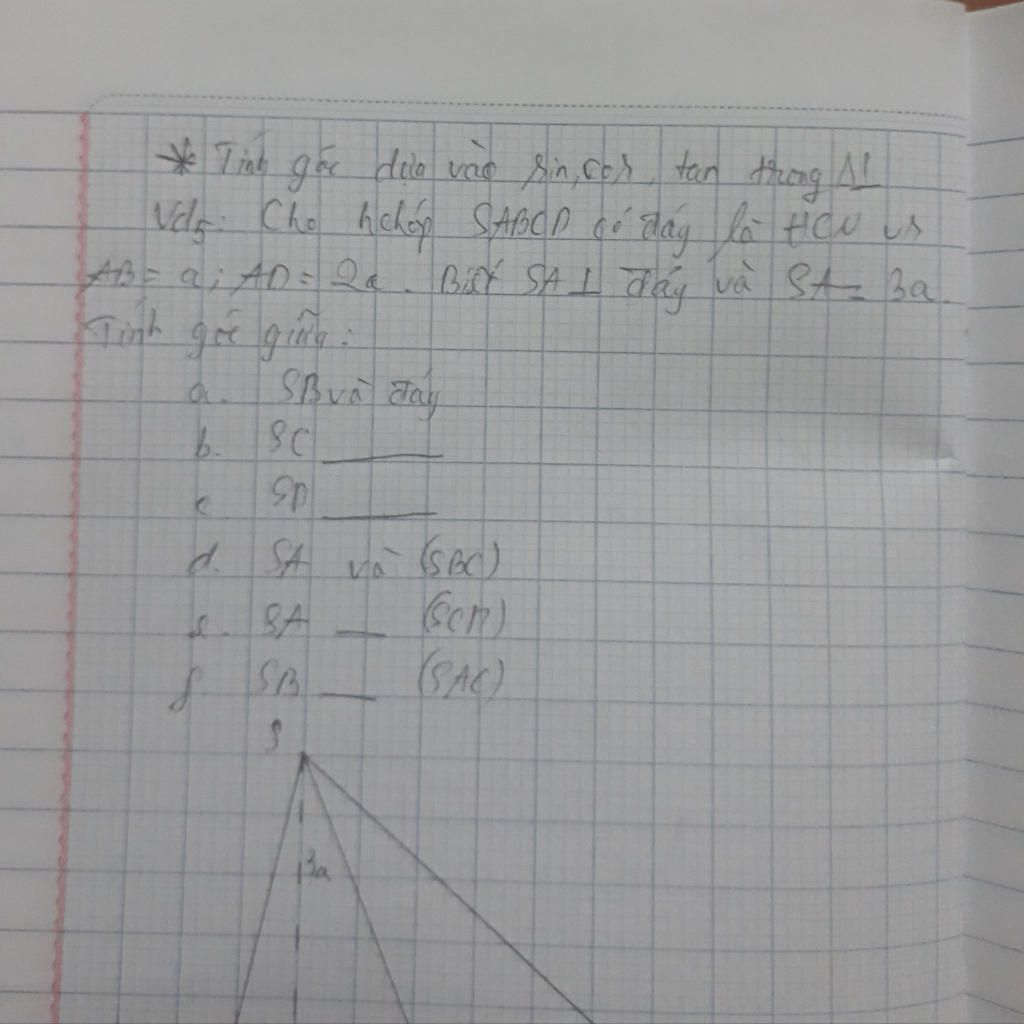 * Tính góc dựa vào sin, cos, tan trong Δ⊥
Vd5: Cho hchóp SABCD có đáy là HCN vs
AB = a; AD = 2a. Biết SA ⊥ đáy và SA = 3a.
Tính góc giữa:
a. SB và đáy
b. SC ____
c. SD ____
d. SA và (SBC)
e. SA __ (SCD)
f. SB __ (SAC)
S
3a